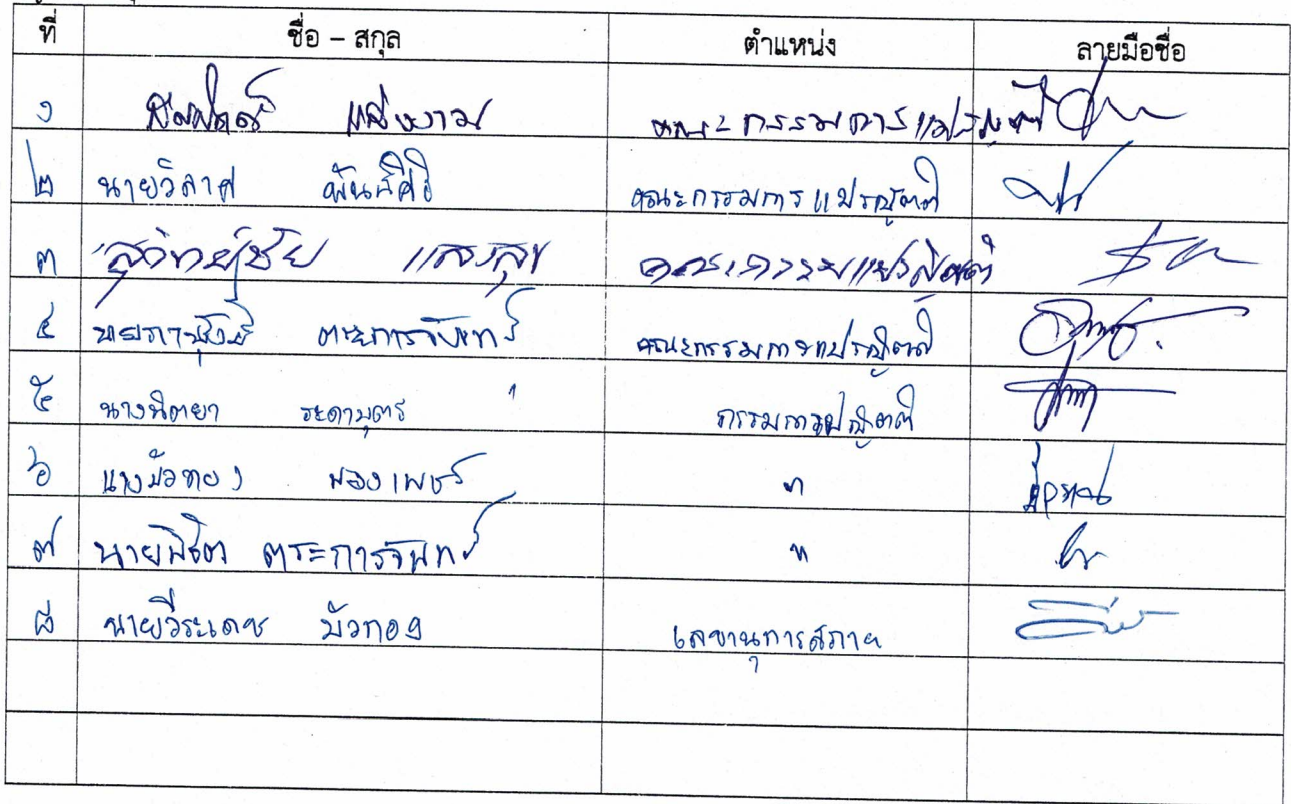 ที่ ชื่อ – สกุล ตำแหน่ง ลายมือชื่อ
๑ แสงงาม คณะกรรมการแปรญัตติ
๒ นายวิลาศ พันธ์ศิริ คณะกรรมการแปรญัตติ
๓ สุวิทย์ชัย แสงสุข
๔ ตระการจันทร์ คณะกรรมการแปรญัตติ
๕ นางนิตยา ระดาบุตร กรรมการแปรญัตติ
๖ นางบัวทอง ผองเพชร "
๗ นายพิชิต ตระการจันทร์ "
๘ นายวีระเดช บัวทอง เลขานุการสภาฯ